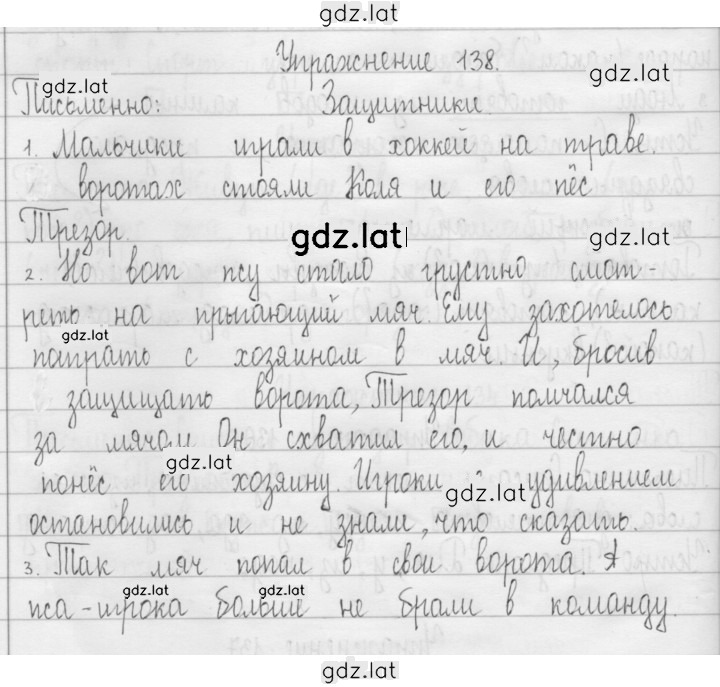 gdz.lat
Упражнение 138
gdz.lat gdz.lat
Письменно: Защитники
1. Мальчики играли в хоккей на траве.
воротах стояли Коля и его пёс
Трезор.
gdz.lat gdz.lat
2. Но вот псу стало грустно смот-
реть на прыгающий мяч. Ему захотелось
gdz.lat
поиграть с хозяином в мяч. И, бросив
защищать ворота, Трезор помчался
за мячом Он схватил его, и честно
gdz.lat
понёс его хозяину. Игроки с удивлением
gdz.lat
остановились и не знали, что сказать.
3. Так мяч попал в свои ворота А
gdz.lat gdz.lat
пса-игрока больше не брали в команду.
gdz.lat